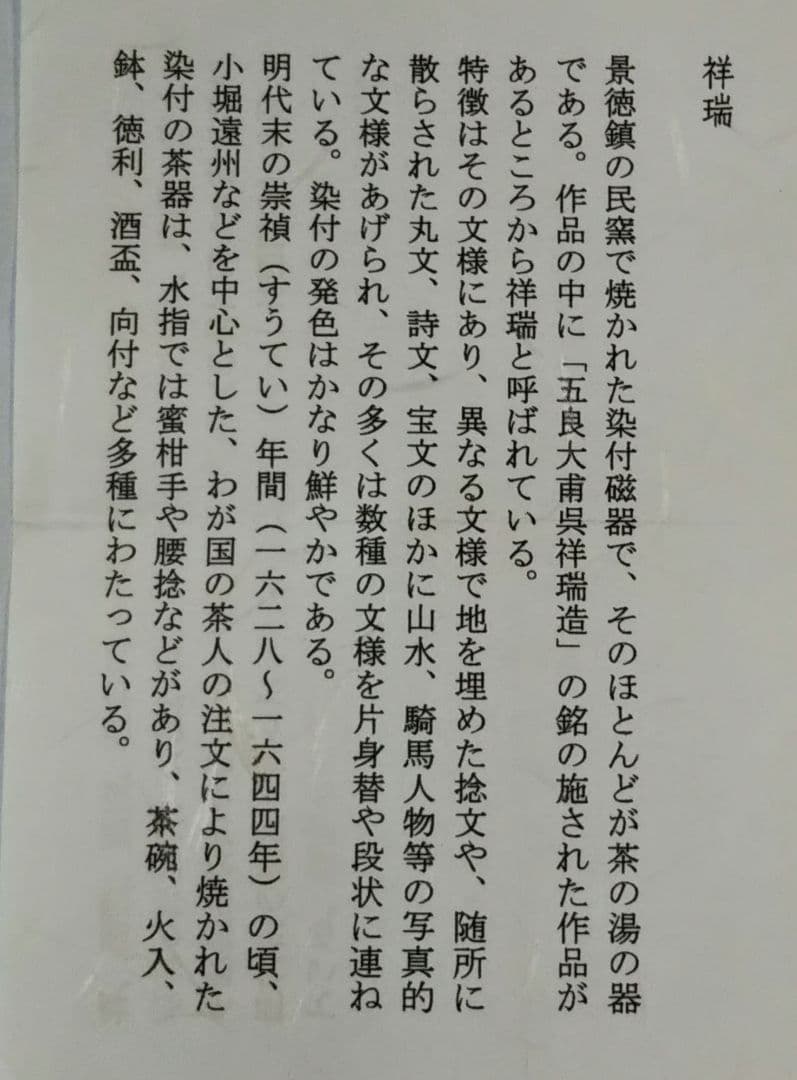 祥瑞
景徳鎮の民窯で焼かれた染付磁器で、そのほとんどが茶の湯の器
である。作品の中に「五良大甫呉祥瑞造」の銘の施された作品が
あるところから祥瑞と呼ばれている。
特徴はその文様にあり、異なる文様で地を埋めた捻文や、随所に
散らされた丸文、詩文、宝文のほかに山水、騎馬人物等の写真的
な文様があげられ、その多くは数種の文様を片身替や段状に連ね
ている。染付の発色はかなり鮮やかである。
明代末の崇禎（すうてい）年間（一六二八〜一六四四年）の頃、
小堀遠州などを中心とした、わが国の茶人の注文により焼かれた
染付の茶器は、水指では蜜柑手や腰捻などがあり、茶碗、火入、
鉢、徳利、酒盃、向付など多種にわたっている。